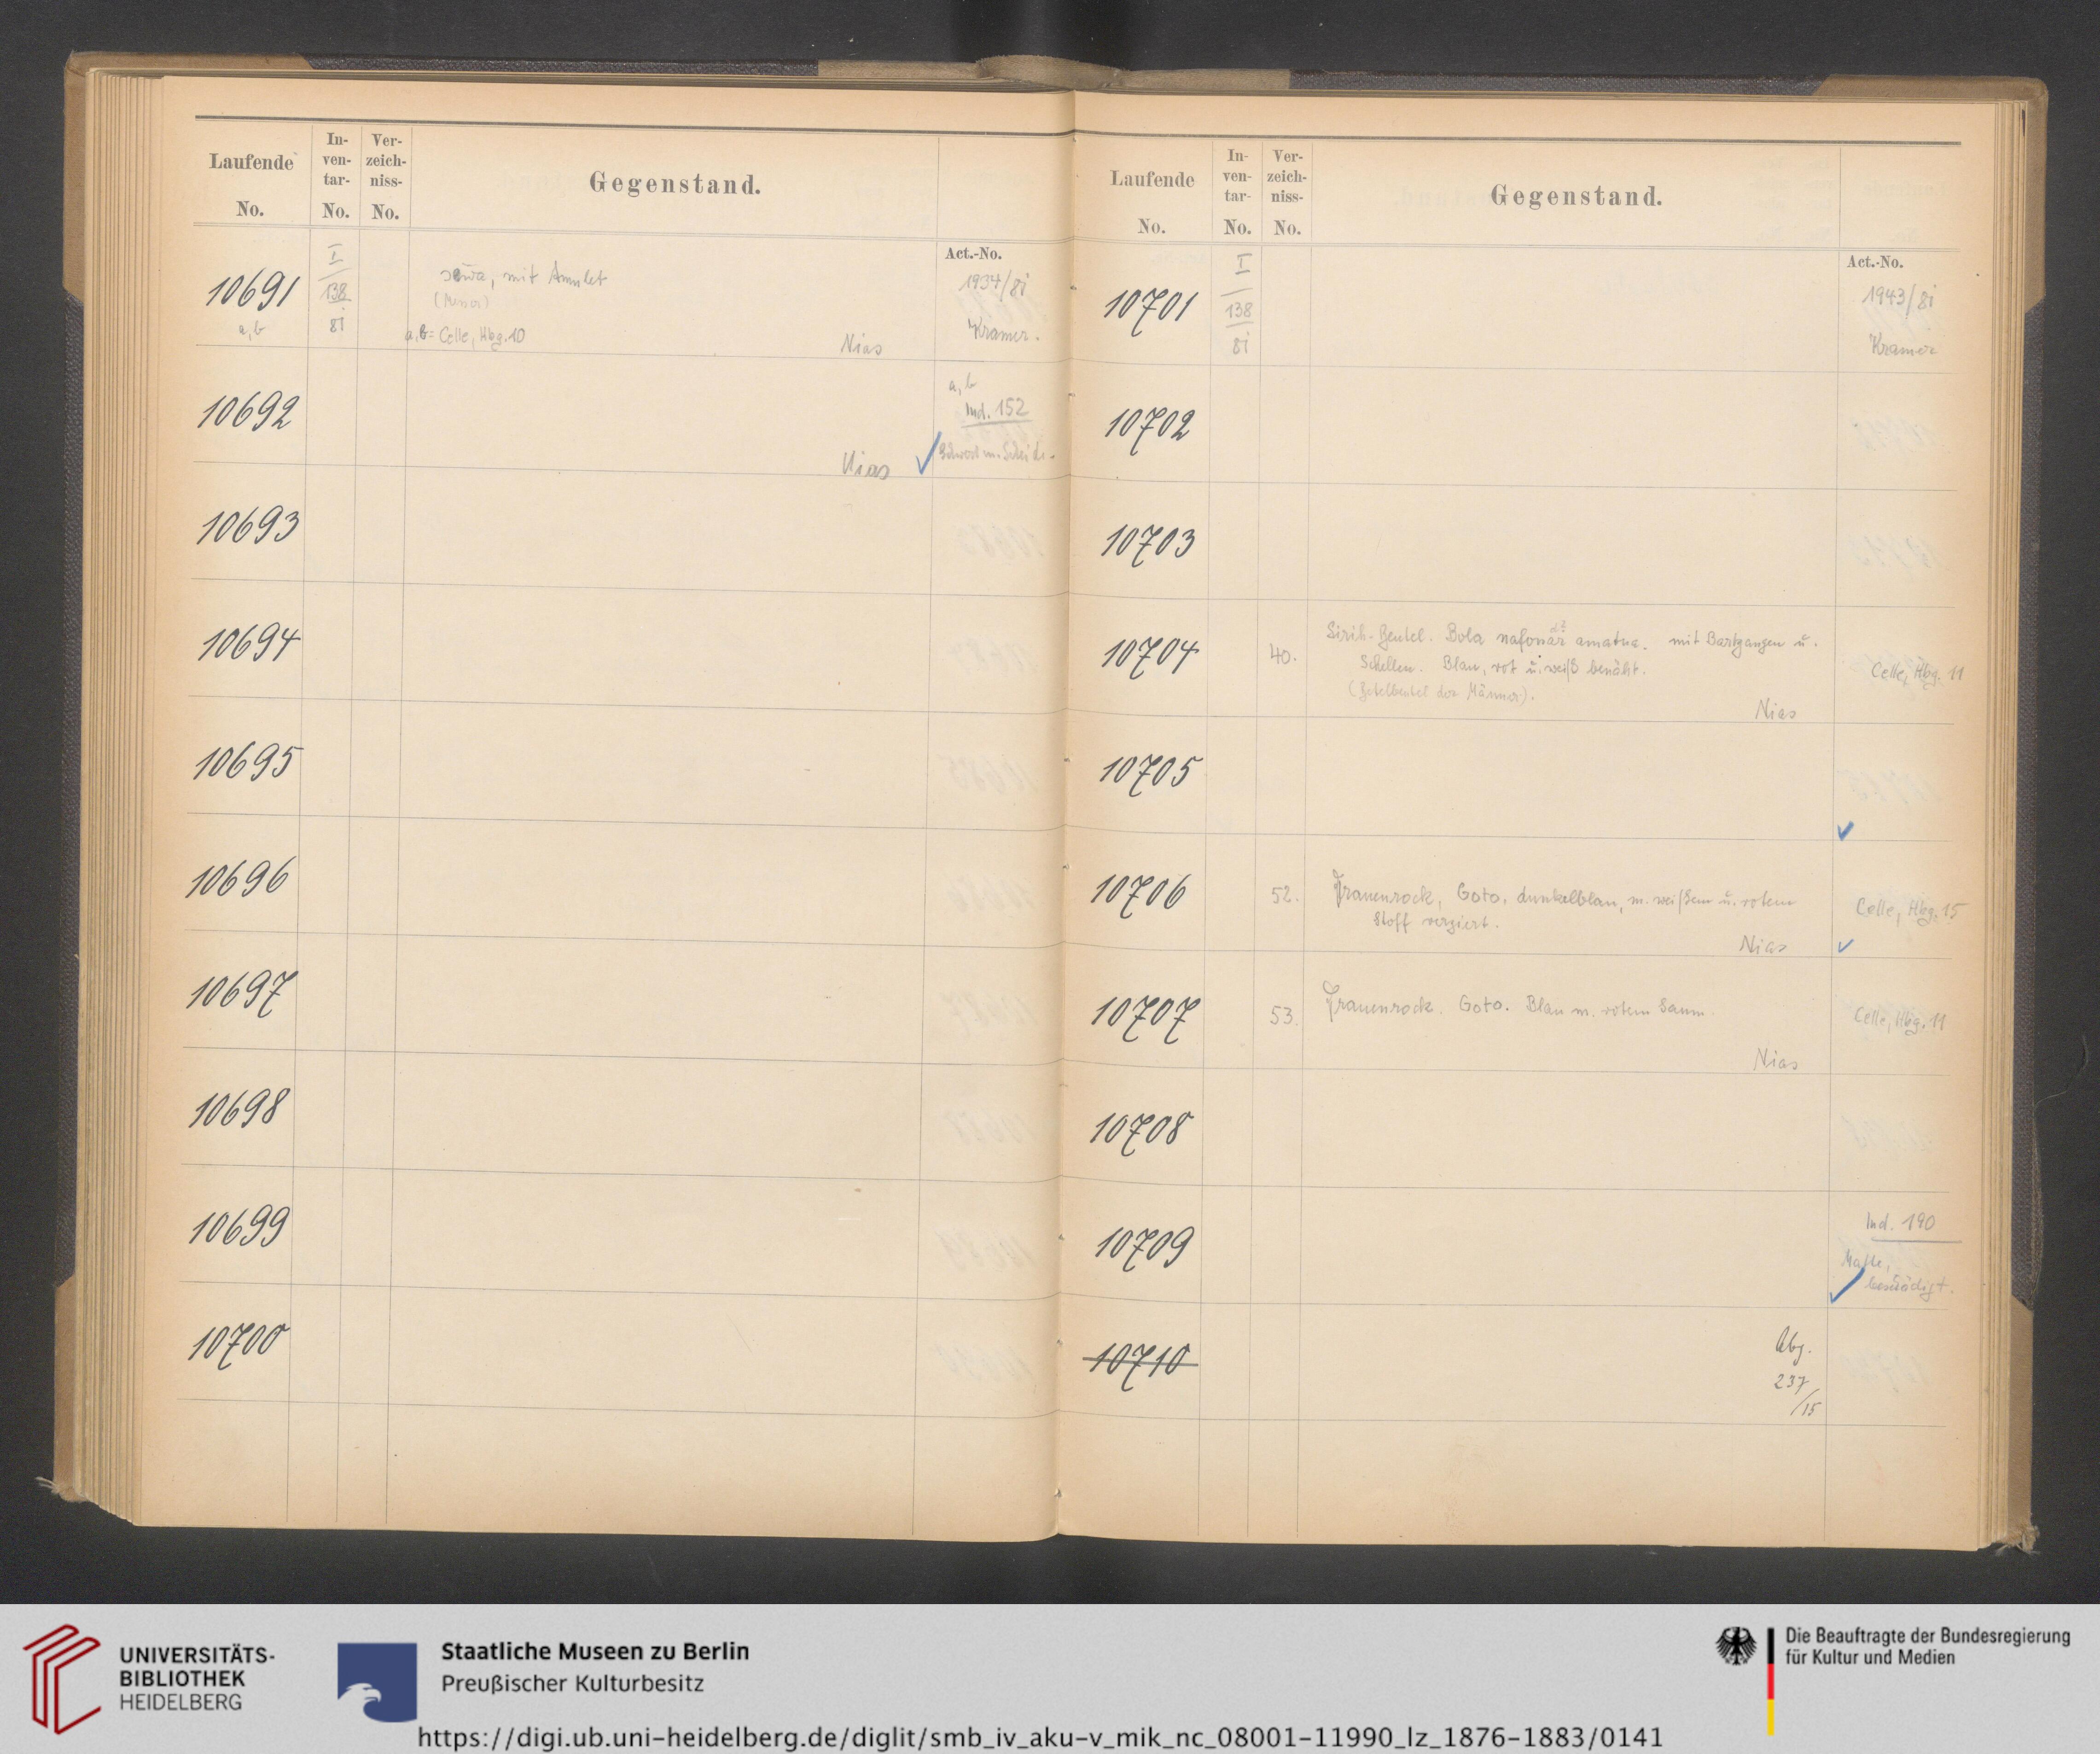 Laufende
No.
In-
ven-
tar-
No.
Ver-
zeich-
niss-
No.
Gegenstand.
Act.-No.
10691
a,b
I
138
8i
sewa, mit Amulet
(Messer)
a,b = Celle, Hbg. 10
Nias
1934/8i
Kramer.
10692
Nias
a, b
Ind. 152
Schwert m. Scheide.
10693
10694
10695
10696
10697
10698
10699
10700
Laufende
No.
In-
ven-
tar-
No.
Ver-
zeich-
niss-
No.
Gegenstand.
Act.-No.
10701
I
138
8i
1943/8i
Kramer
10702
10703
10704
40.
Sirih-Beutel. Bola amatua. mit u.
Schellen. Blau, rot u. weiß benäht.
(Betelbeutel der Männer).
Nias
Celle, Hbg. 11
10705
10706
52.
Frauenrock, Goto, dunkelblau, m. weißem u. rotem
Stoff verziert.
Nias
Celle, Hbg. 15
10707
53.
Frauenrock. Goto. Blau m. rotem Saum.
Nias
Celle, Hbg. 11
10708
10709
Ind. 190
beschädigt.
10710
Abg.
237
/15
UNIVERSITÄTS-
BIBLIOTHEK
HEIDELBERG
Staatliche Museen zu Berlin
Preußischer Kulturbesitz
Die Beauftragte der Bundesregierung
für Kultur und Medien
https://digi.ub.uni-heidelberg.de/diglit/smb_iv_aku-v_mik_nc_08001-11990_lz_1876-1883/0141